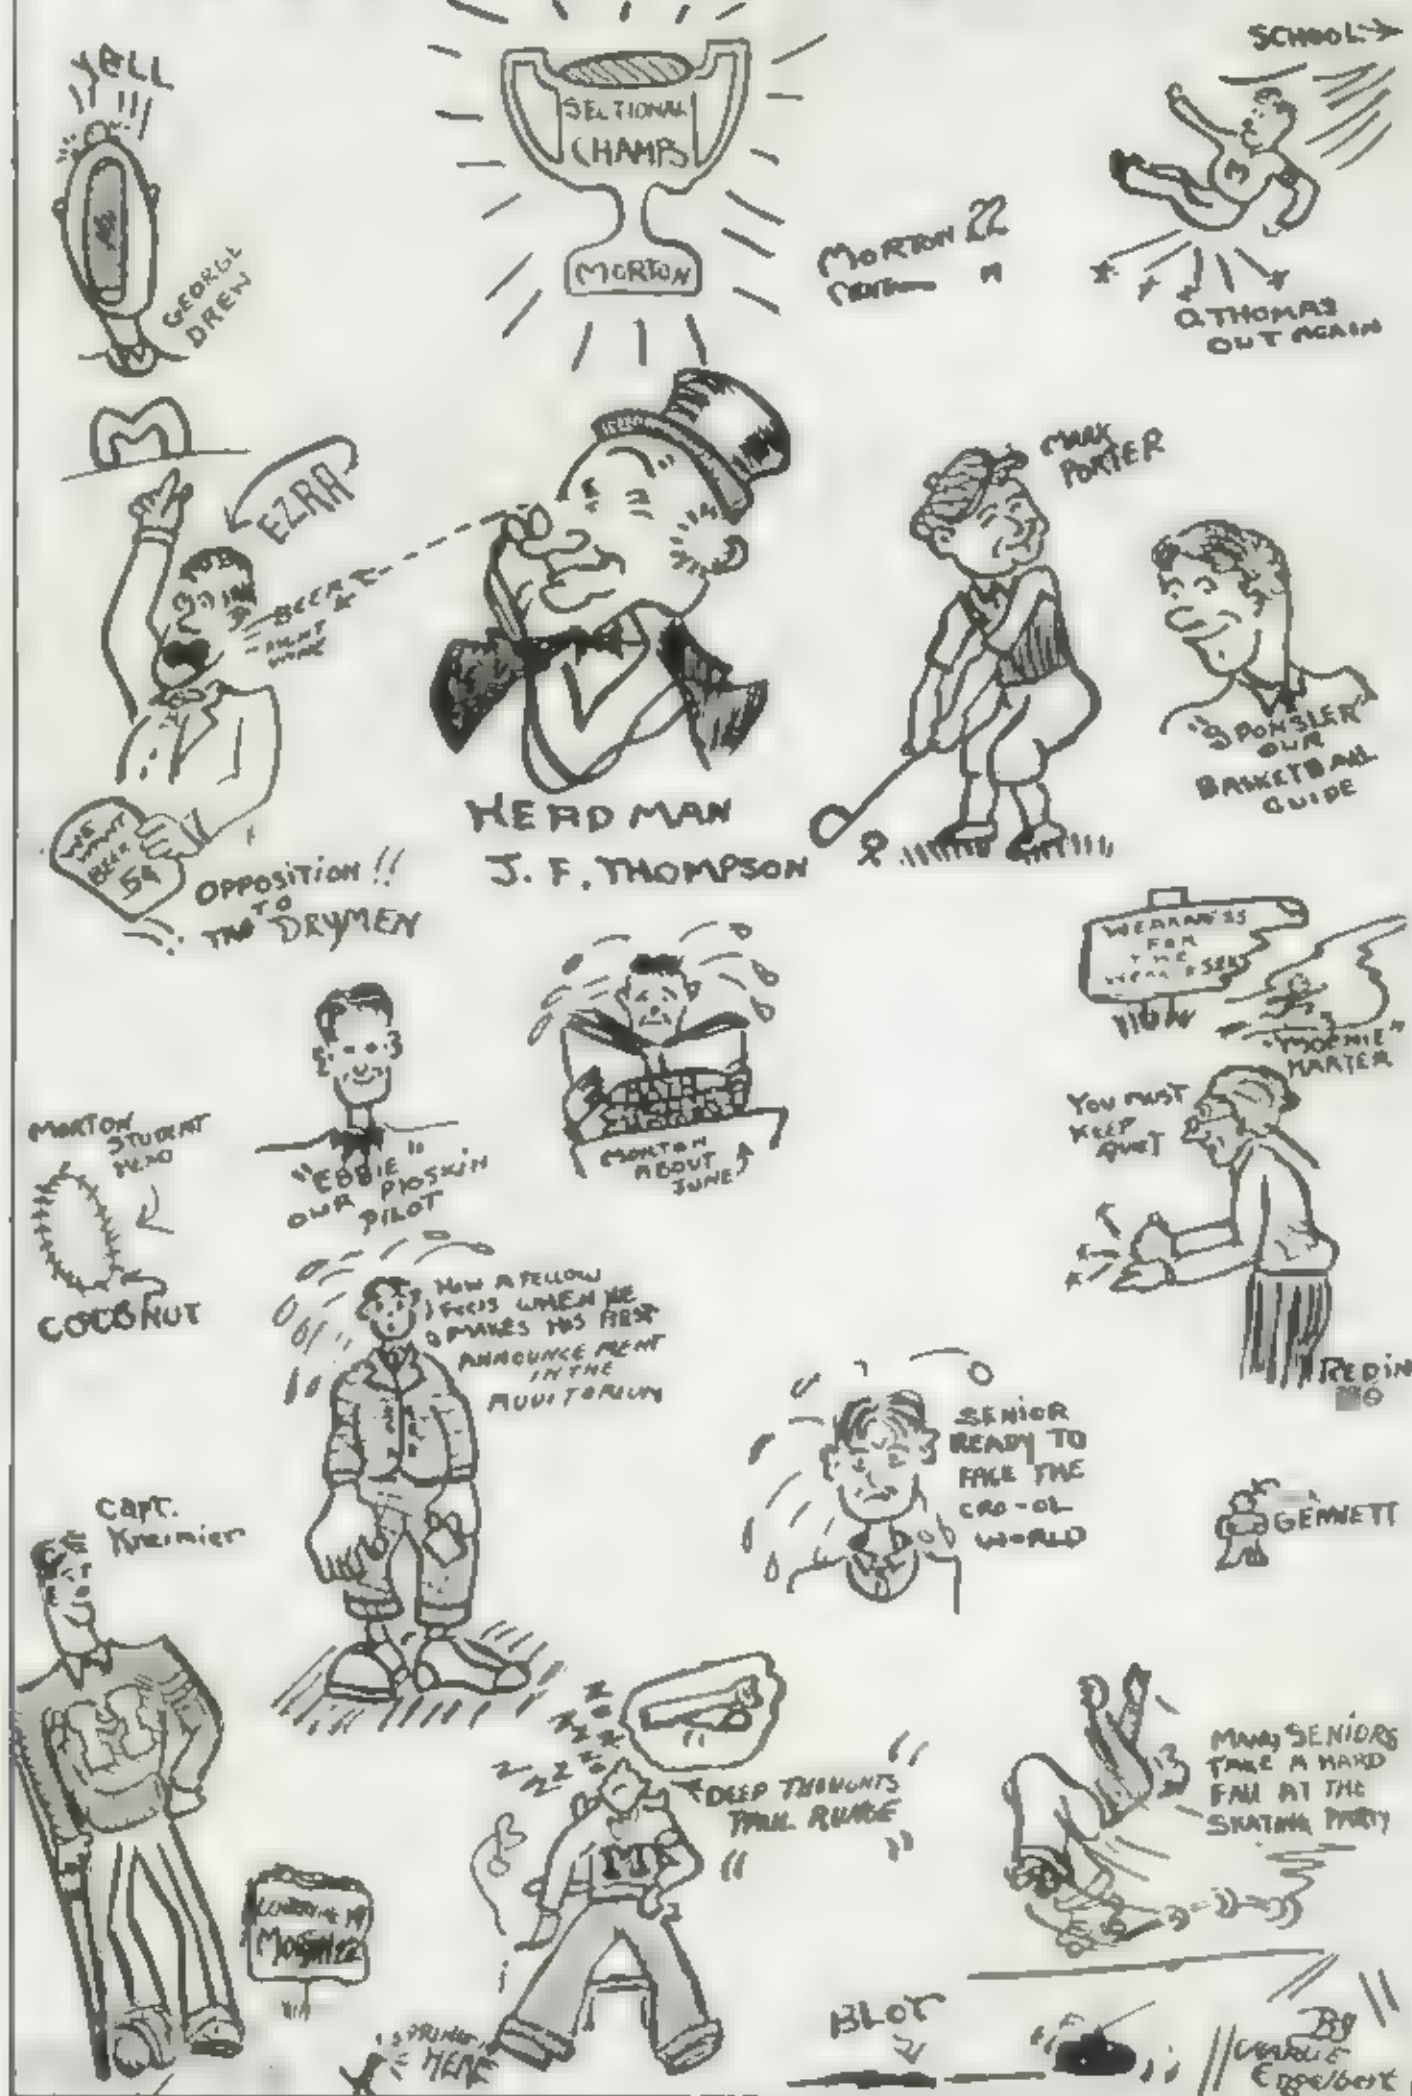 YELL
GEORGE
DREW
SECTIONAL
CHAMPS
MORTON
MORTON 22
SCHOOL
O. THOMAS
OUT AGAIN
EZRA
BEER
LIGHT
WINE
WE
WANT
BEER
5¢
OPPOSITION!!
TO
THE DRYMEN
HEAD MAN
J. F. THOMPSON
MARK
PORTER
"SPONSLER"
OUR
BASKETBALL
GUIDE
WEAKNESS
FOR
THE
MARTER
YOU MUST
KEEP
QUIET
REDING
MORTON
STUDENT
HEAD
COCONUT
"EBBIE"
OUR PIGSKIN
PILOT
MATH
MORTON
ABOUT
JUNE
HOW A FELLOW
FEELS WHEN HE
MAKES HIS FIRST
ANNOUNCEMENT
IN THE
AUDITORIUM
SENIOR
READY TO
FACE THE
CRO-OL
WORLD
GENNETT
Capt.
Kreimier
MORTON 22
Z Z Z Z
DEEP THOUGHTS
PAUL RUNGE
SPRING
HERE
MANY SENIORS
TAKE A HARD
FALL AT THE
SKATING PARTY
BLOT
By
CHARLIE
Engelbert